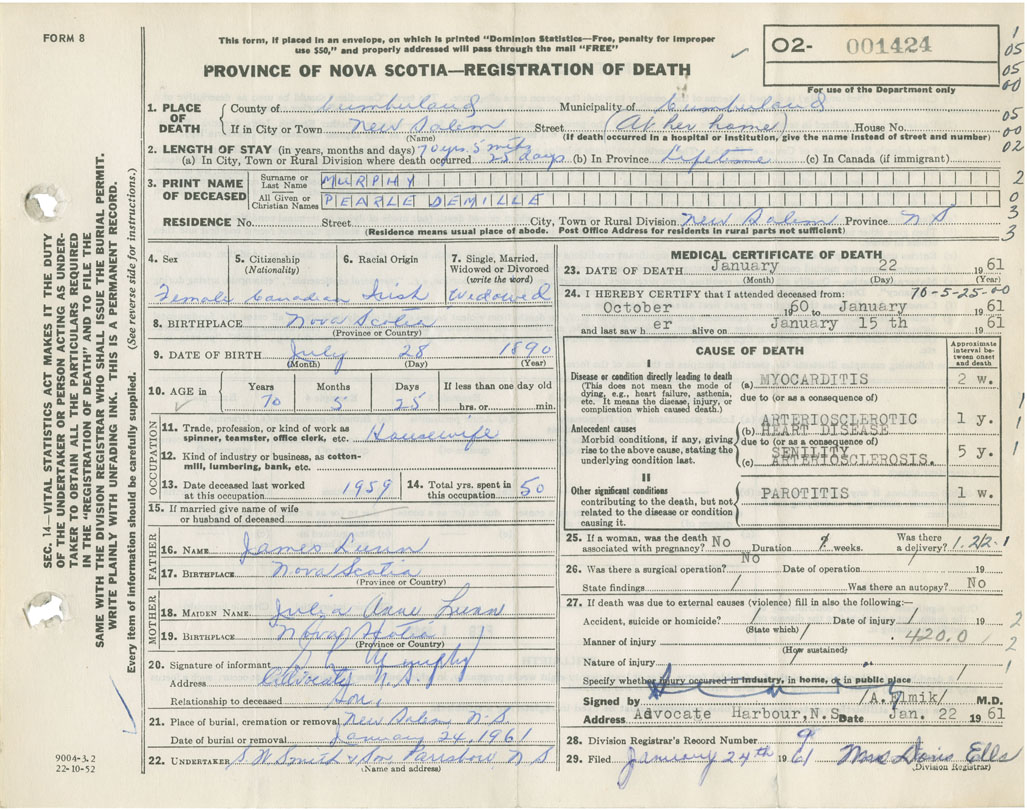 FORM 8
This form, if placed in an envelope, on which is printed "Dominion Statistics—Free, penalty for improper
use $50," and properly addressed will pass through the mail "FREE"
O2- 001424
For use of the Department only
PROVINCE OF NOVA SCOTIA—REGISTRATION OF DEATH
1
05
05
00
05
00
02
2
0
3
3
1. PLACE OF DEATH
County of Cumberland Municipality of Cumberland
If in City or Town New Salem Street (At her home) House No.
(Name) (If death occurred in a hospital or institution, give the name instead of street and number)
2. LENGTH OF STAY (in years, months and days) 70 yrs. 5 mths
(a) In City, Town or Rural Division where death occurred 25 days (b) In Province Lifetime (c) In Canada (if immigrant)
3. PRINT NAME OF DECEASED
Surname or Last Name MURPHY
All Given or Christian Names PEARLE DEMILLE
RESIDENCE No. Street City, Town or Rural Division New Salem Province N S
(Residence means usual place of abode. Post Office Address for residents in rural parts not sufficient)
4. Sex
Female
5. Citizenship
(Nationality)
Canadian
6. Racial Origin
Irish
7. Single, Married,
Widowed or Divorced
(write the word)
Widowed
8. BIRTHPLACE Nova Scotia
(Province or Country)
9. DATE OF BIRTH July 28 1890
(Month) (Day) (Year)
10. AGE in
Years Months Days If less than one day old
70 5 25 hrs. or min.
OCCUPATION
11. Trade, profession, or kind of work as
spinner, teamster, office clerk, etc. Housewife
12. Kind of industry or business, as cotton-
mill, lumbering, bank, etc.
13. Date deceased last worked
at this occupation 1959
14. Total yrs. spent in
this occupation 50
15. If married give name of wife
or husband of deceased
FATHER
16. NAME James Lunn
17. BIRTHPLACE Nova Scotia
(Province or Country)
MOTHER
18. MAIDEN NAME Julia Anne Lunn
19. BIRTHPLACE Nova Scotia
(Province or Country)
20. Signature of informant Murphy
Address N. S.
Relationship to deceased Son
21. Place of burial, cremation or removal New Salem N. S.
Date of burial or removal January 24, 1961
22. UNDERTAKER S. W. Smith & Son Parrsboro N S
(Name and address)
MEDICAL CERTIFICATE OF DEATH
23. DATE OF DEATH January 22 1961
(Month) (Day) (Year)
24. I HEREBY CERTIFY that I attended deceased from: 70-5-25-00
October 1960 to January 1961
and last saw her alive on January 15 th 1961
CAUSE OF DEATH
Approximate
interval be-
tween onset
and death
I
Disease or condition directly leading to death
(This does not mean the mode of
dying, e.g., heart failure, asthenia,
etc. It means the disease, injury, or
complication which caused death.)
(a) MYOCARDITIS 2 w.
due to (or as a consequence of)
Antecedent causes
Morbid conditions, if any, giving
rise to the above cause, stating the
underlying condition last.
ARTERIOSCLEROTIC 1 y. 1
(b) HEART DISEASE
due to (or as a consequence of)
SENILITY 5 y. 1
(c) ARTERIOSCLEROSIS.
II
Other significant conditions
contributing to the death, but not
related to the disease or condition
causing it.
PAROTITIS 1 w.
25. If a woman, was the death
associated with pregnancy? No Duration weeks. Was there
a delivery?
26. Was there a surgical operation? No Date of operation 19
State findings / Was there an autopsy? No
27. If death was due to external causes (violence) fill in also the following:—
Accident, suicide or homicide? / Date of injury / 19 2
(State which)
Manner of injury / 420.0 2
(How sustained)
Nature of injury /
Specify whether injury occurred in industry, in home, or in public place / 1
Signed by /A.Elmik/ M.D.
Address Advocate Harbour,N.S. Date Jan. 22 1961
28. Division Registrar's Record Number 9
29. Filed January 24th 1961 Mrs Doris Ells
(Division Registrar)
SEC. 14—VITAL STATISTICS ACT MAKES IT THE DUTY
OF THE UNDERTAKER OR PERSON ACTING AS UNDER-
TAKER TO OBTAIN ALL THE PARTICULARS REQUIRED
IN THE "REGISTRATION OF DEATH" AND TO FILE THE
SAME WITH THE DIVISION REGISTRAR WHO SHALL ISSUE THE BURIAL PERMIT.
WRITE PLAINLY WITH UNFADING INK. THIS IS A PERMANENT RECORD.
Every item of information should be carefully supplied. (See reverse side for instructions.)
9004-3.2
22-10-52